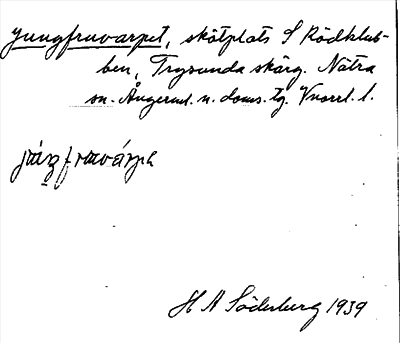 Jungfruvarpet, skötplats S Rödklub-
ben, Trysunda skärg. Nätra
sn. Ångerml. n. doms. tg. Vnorrl. l.
H A Söderberg 1939